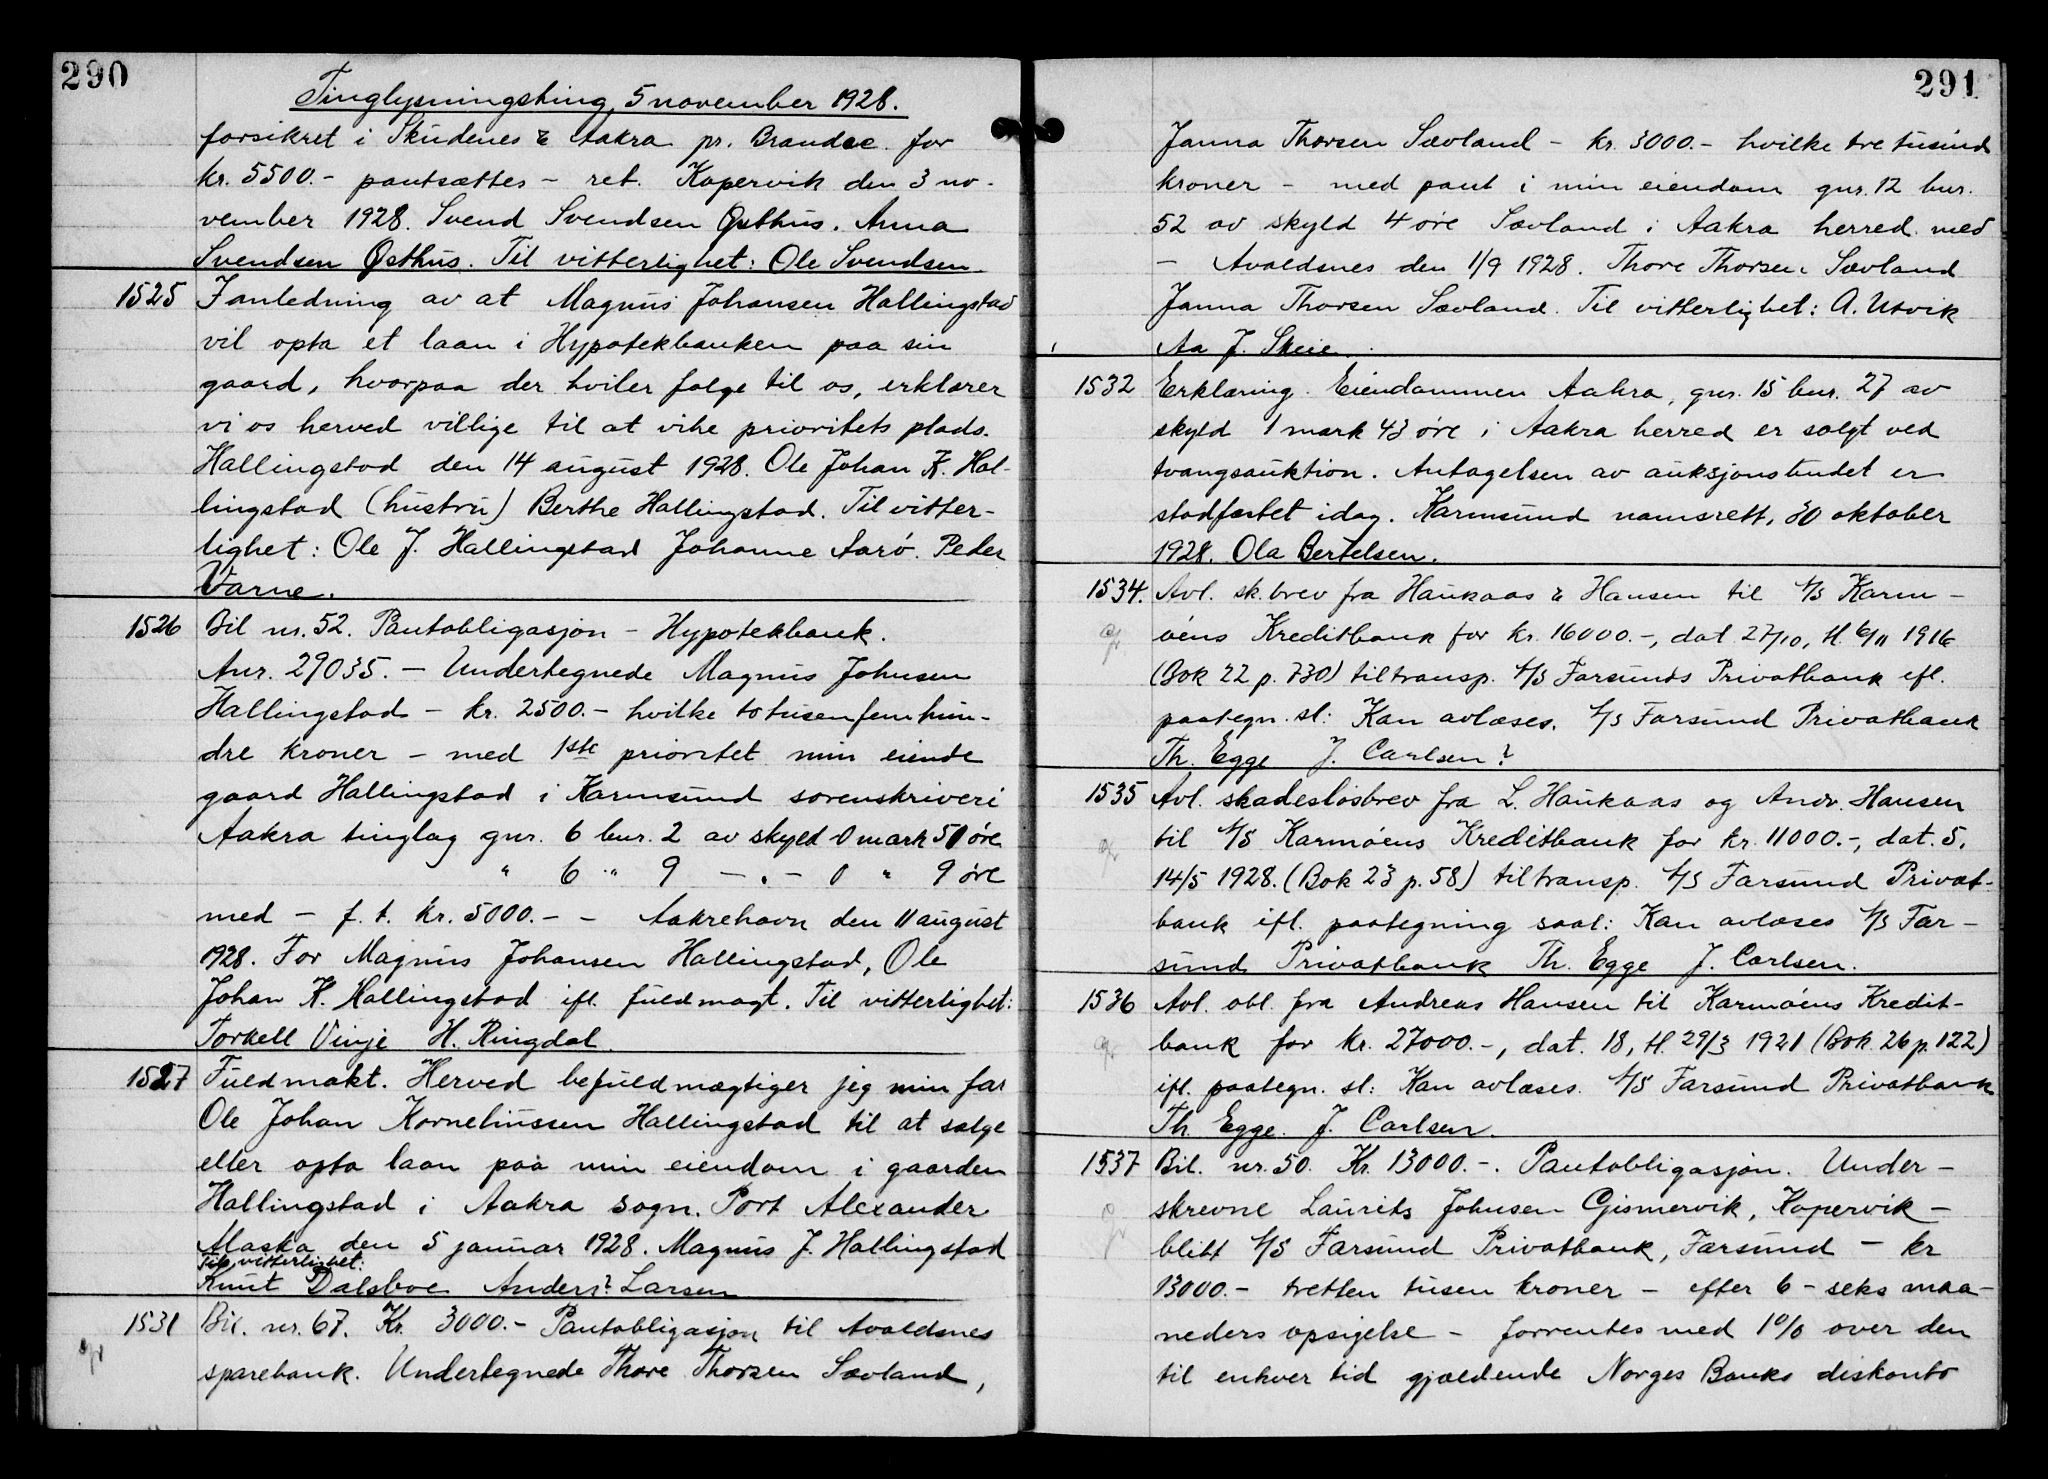 290
Tinglysningsting, 5 november 1928.
forsikret i Skudenes & Aakra pr. Brandsc. for
kr. 5500.- pantsættes - ret. Kopervik den 3 no-
vember 1928. Svend Svendsen Østhus. Anna
Svendsen Østhus. Til vitterlighet: Ole Svendsen
1525 I anledning av at Magnus Johansen Hallingstad
vil opta et laan i Hypotekbanken paa sin
gaard, hvorpaa der hviler følge til os, erklærer
vi os herved villige til at vike prioritets plads.
Hallingstad den 14 august 1928. Ole Johan K. Hal-
lingstad (hustru) Berthe Hallingstad. Til vitter-
lighet: Ole J. Hallingstad Johanne Aarö. Peder
Varne.
1526 Bil nr. 52. Pantobligasjon - Hypotekbank.
Anr. 29035. - Undertegnede Magnus Johnsen
Hallingstad - kr. 2500.- hvilke totusenfemhun-
dre kroner - med 1ste prioritet min eiende
gaard Hallingstad i Karmsund sorenskriveri
Aakra tinglag gnr. 6 bnr. 2 av skyld 0 mark 50 øre
" 6 " 9 - " - 0 " 9 øre
med - f. t. kr. 5000.- - Aakrehavn den 11 august
1928. For Magnus Johansen Hallingstad, Ole
Johan K. Hallingstad ifl. fuldmagt. Til vitterlighet:
Torkell Vinje H. Ringdal.
1527 Fuldmakt. Herved befuldmægtiger jeg min far
Ole Johan Korneliussen Hallingstad til at sælge
eller opta laan paa min eiendom i gaarden
Hallingstad i Aakra sogn. Port Alexander
Alaska den 5 januar 1928. Magnus J. Hallingstad
Til vitterlighet:
Knut Dalsboe Anders? Larsen
1531 Bil. nr. 67. Kr. 3000.- Pantobligasjon til Avaldsnes
sparebank. Undertegnede Thore Thorsen Sævland,
291
Janna Thorsen Sævland - kr. 3000.- hvilke tre tusind
kroner - med pant i min eiendom gnr. 12 bnr.
52 av skyld 4 øre Sævland i Aakra herred med
- Avaldsnes den 1/9 1928. Thore Thorsen Sævland
Janna Thorsen Sævland. Til vitterlighet: A. Utvik
Aa J. Skeie.
1532 Erklæring. Eiendommen Aakra, gnr. 15 bnr. 27 av
skyld 1 mark 43 øre i Aakra herred er solgt ved
tvangsauktion. Antagelsen av auksjonsbudet er
stadfæstet idag. Karmsund namsrett, 30 oktober
1928. Ola Bertelsen.
1534. Avl. sk.brev fra Haukaas & Hansen til A/S Karm-
öens Kreditbank for kr. 16000.-, dat. 27/10, tl. 6/11 1916
(Bok 22 p. 730) til transp. A/S Farsunds Privatbank ifl.
paategn. sl: Kan avlæses. A/S Farsund Privatbank
Th. Egge J. Carlsen?
1535 Avl. skadeslösbrev fra L. Haukaas og Andr. Hansen
til A/S Karmöens Kreditbank for kr. 11000.-, dat. 5.
14/5 1928. (Bok 23 p. 58) til transp. A/S Farsund Privat-
bank ifl. paategning saal: Kan avlæses A/S Far-
sund Privatbank Th. Egge J. Carlsen.
1536 Avl. obl. fra Andreas Hansen til Karmöens Kredit-
bank for kr. 27000.-, dat. 18, tl. 29/3 1921 (Bok 26 p. 122)
ifl. paategn. sl: Kan avlæses. A/S Farsund Privatbank
Th. Egge. J. Carlsen.
1537 Bil. nr. 50. Kr. 13000.-. Pantobligasjon. Under-
skrevne Laurits Johnsen Gismervik, Kopervik -
blitt A/S Farsund Privatbank, Farsund - kr
13000.- tretten tusen kroner - efter 6 - seks maa-
neders opsigelse - forrentes med 1% over den
til enhver tid gjældende Norges Banks diskonto